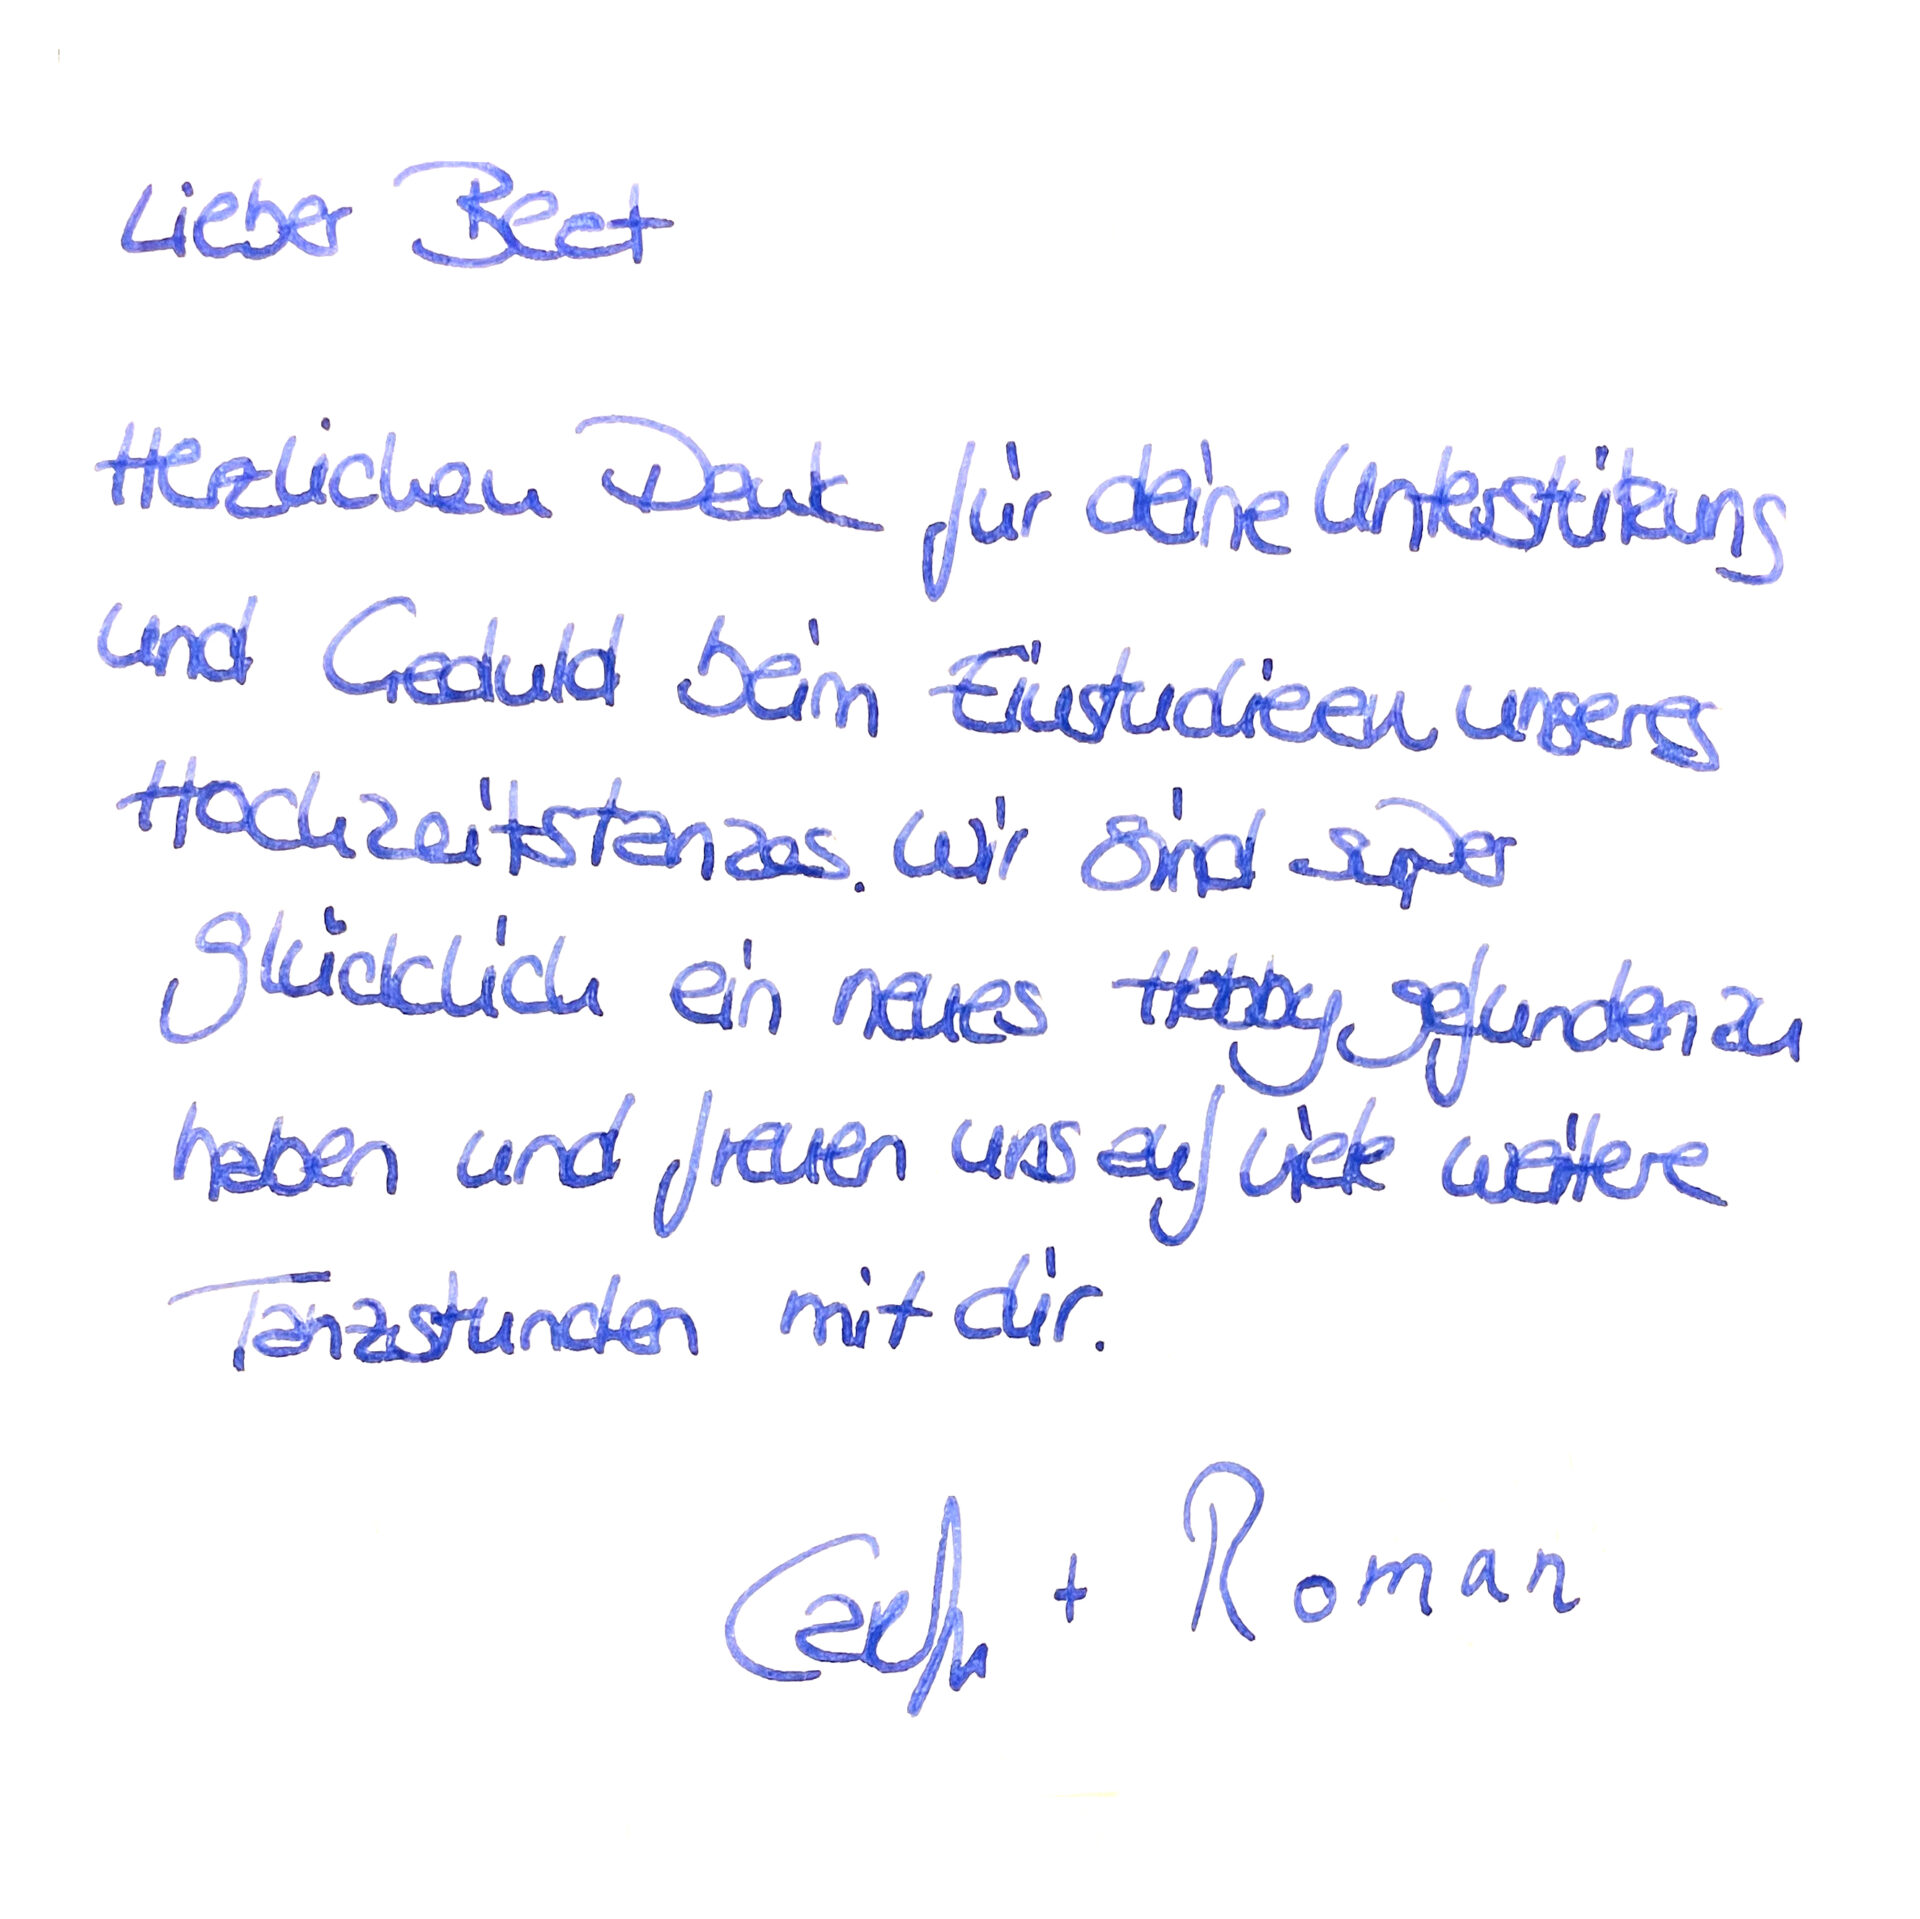 Lieber Beat
Herzlichen Dank für deine Unterstützung
und Geduld beim Einstudieren unseres
Hochzeitstanzes. Wir sind super
glücklich ein neues Hobby gefunden zu
haben und freuen uns auf viele weitere
Tanzstunden mit dir.
+ Roman